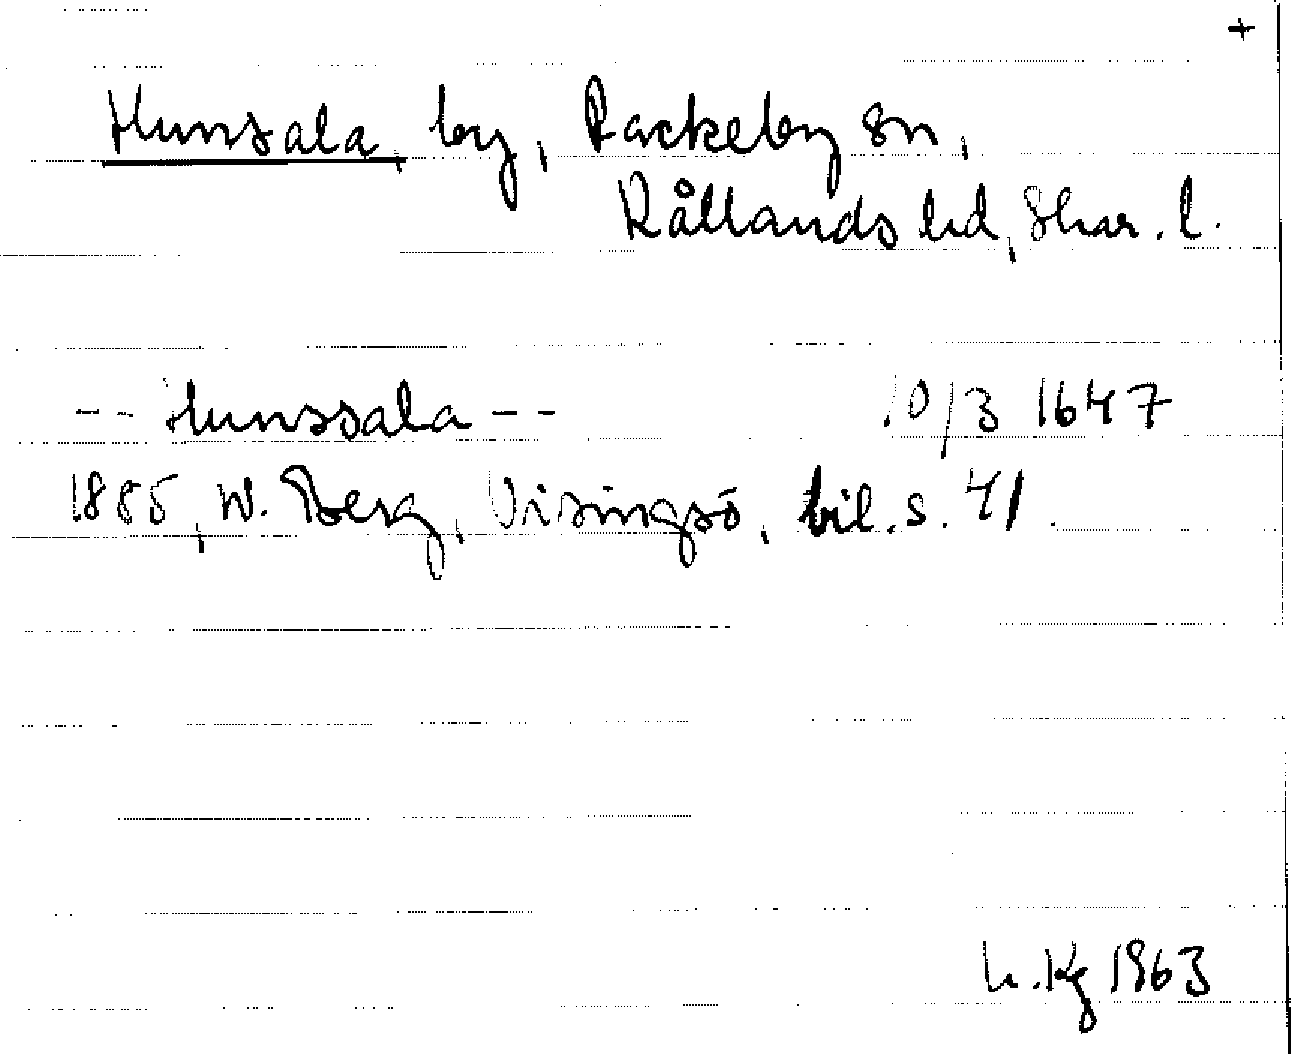 +
Hunsala, by, Rackeby sn,
Kållands hd, Skar. l.
-- Hunssala -- 10/3 1647
1885, W. Berg, Visingsö, bil. s. 41.
1963